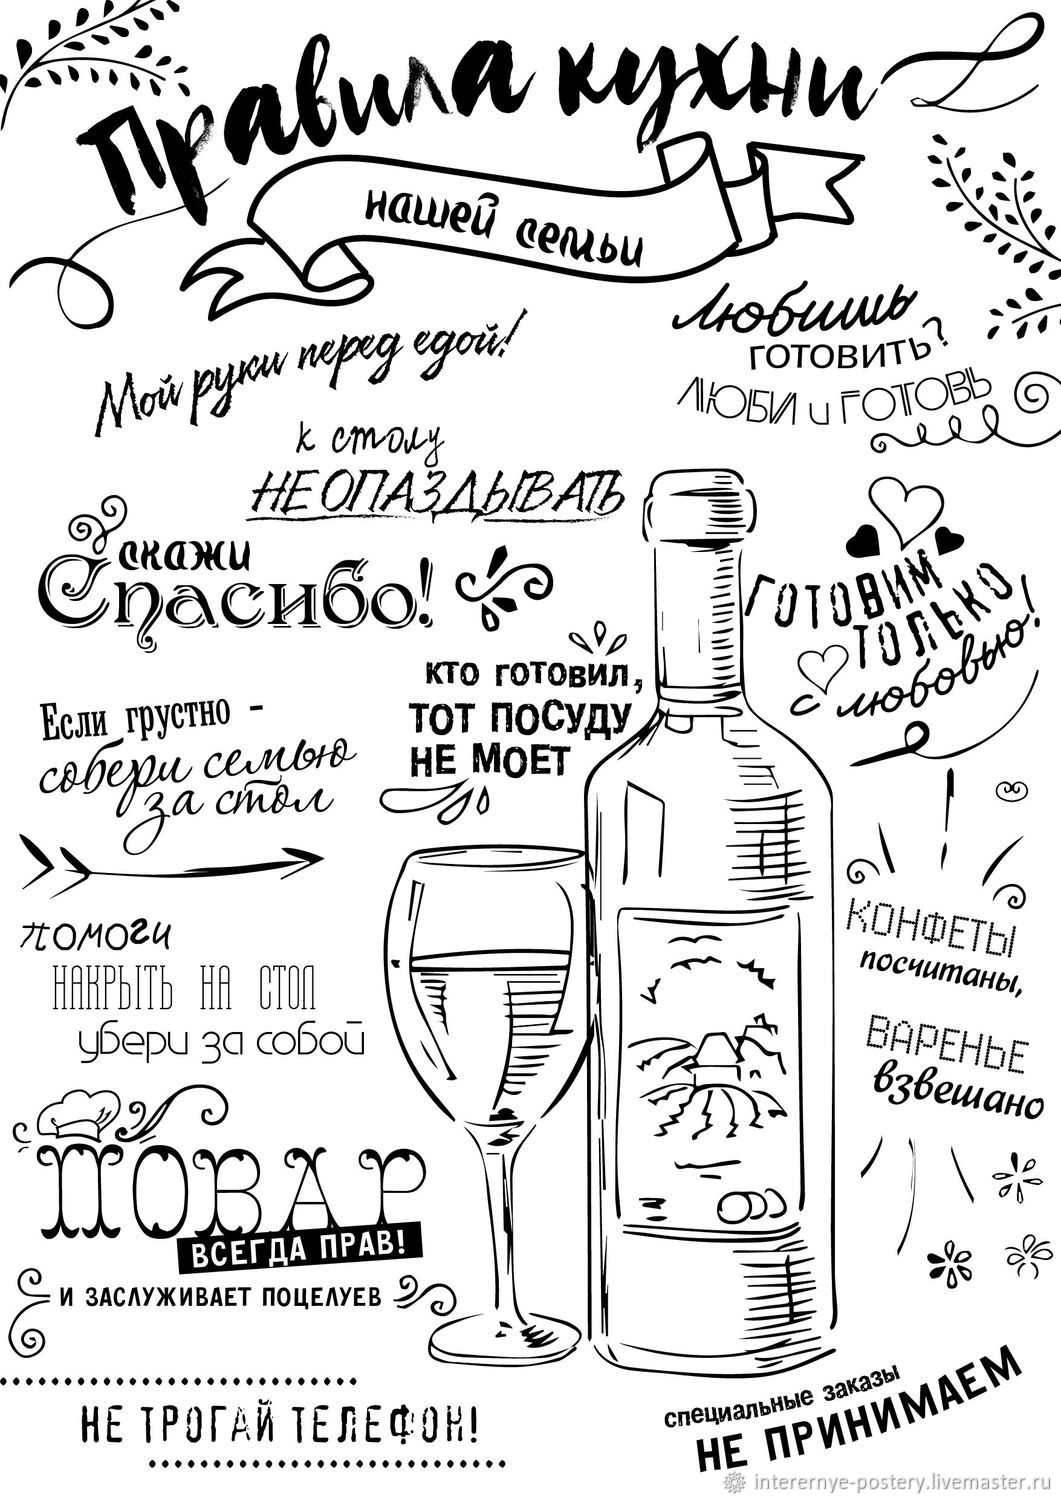 Правила кухни
нашей семьи
Мой руки перед едой!
Любишь
готовить?
ЛЮБИ и ГОТОВЬ
к столу
НЕ ОПАЗДЫВАТЬ
скажи
Спасибо!
ГОТОВИМ
ТОЛЬКО
с любовью!
КТО ГОТОВИЛ,
ТОТ ПОСУДУ
НЕ МОЕТ
Если грустно -
собери семью
за стол
КОНФЕТЫ
посчитаны,
ВАРЕНЬЕ
взвешано
помоги
НАКРЫТЬ НА СТОЛ
убери за собой
ПОВАР
ВСЕГДА ПРАВ!
И ЗАСЛУЖИВАЕТ ПОЦЕЛУЕВ
НЕ ТРОГАЙ ТЕЛЕФОН!
специальные заказы
НЕ ПРИНИМАЕМ
interernye-postery.livemaster.ru